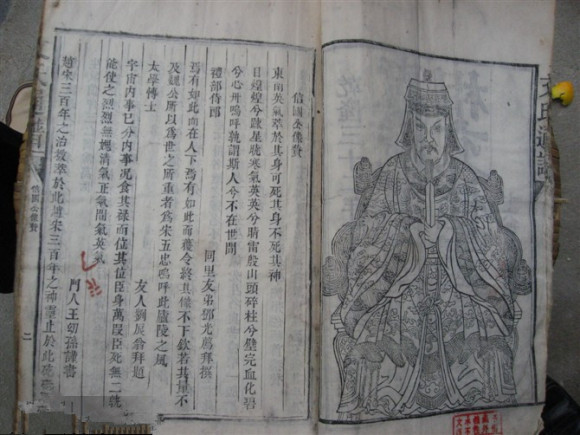 文氏通譜
信國公像贊
東南英氣萃於其身可死其身不死其神
目煌煌兮疎星曉寒氣英英兮晴雷殷山頭碎柱兮璧完血化碧
兮心丹嗚呼孰謂斯人兮不在世間
禮部侍郎 同里友弟鄧光薦拜撰
焉有如此而在人下焉有如此而獲令終其像不下欽若其量不
及魏公所以爲世之所重者爲宋五忠嗚呼此廬陵之風
太學博士 友人劉辰翁拜題
宇宙內事已分內事况食其祿而位其位臣身萬段臣死無二兢
能使之烈烈無媿清氣正氣間氣英氣
門人王幼孫謹書
趙宋三百年之治教萃於此趙宋三百年之神靈止於此
信國公像贊
二